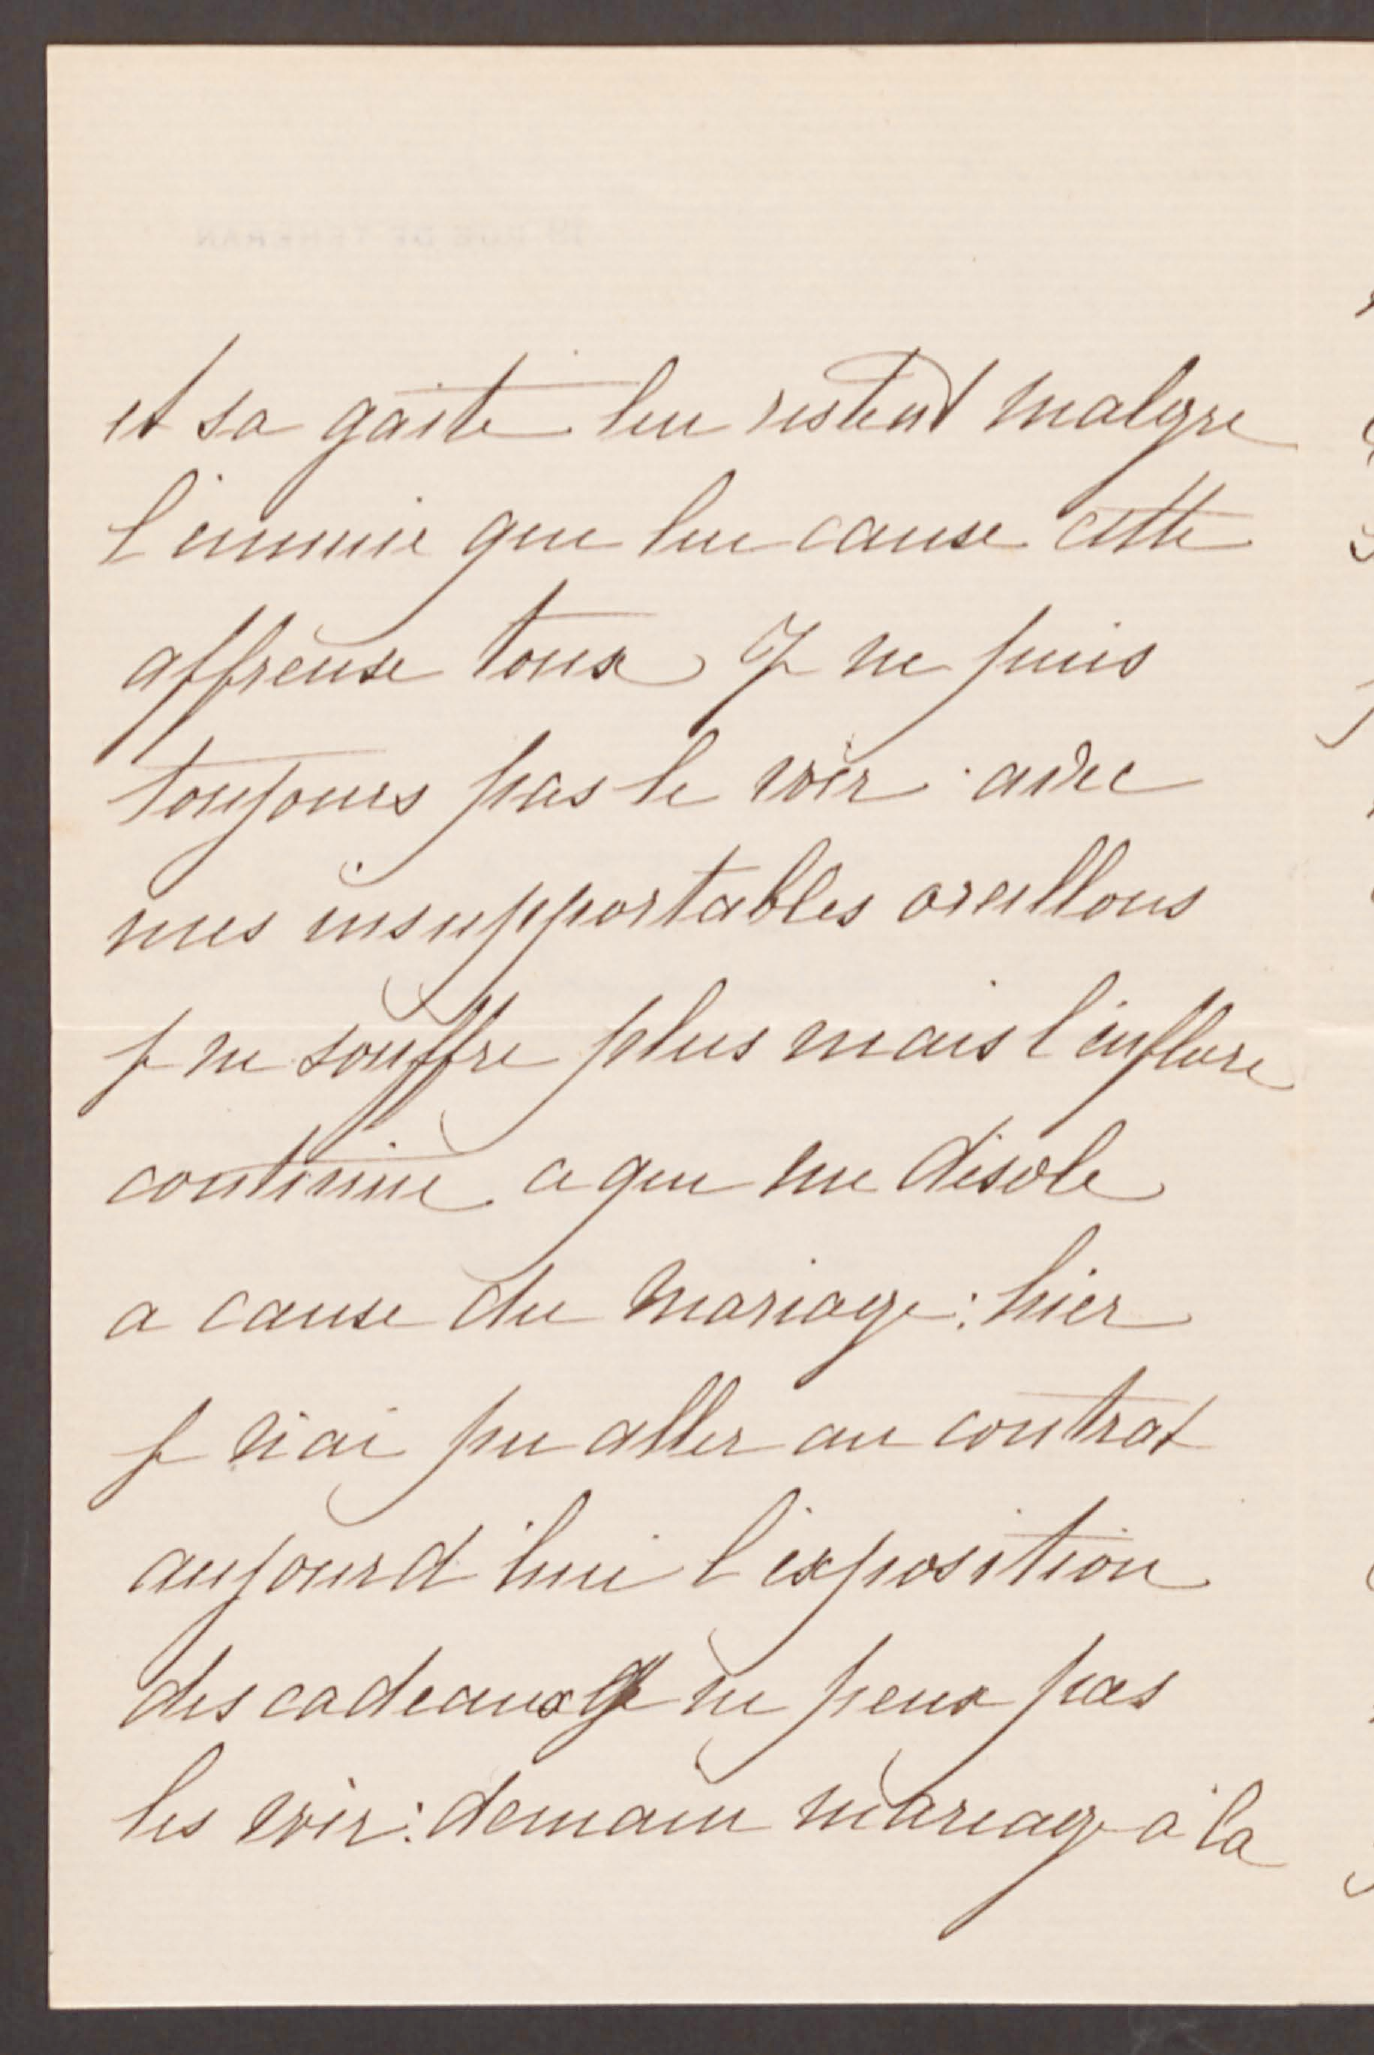 et sa gaité lui restent malgre
l'ennuie que lui cause cette
affreuse toux Je ne puis
toujours pas le voir avec
mes insupportables oreillons
je ne souffre plus mais l'enflure
continue ce qui me désole
a cause du mariage : hier
je n'ai pu aller au contrat
aujourd'hui l'exposition
des cadeaux je ne peux pas
les voir : demain mariage à la